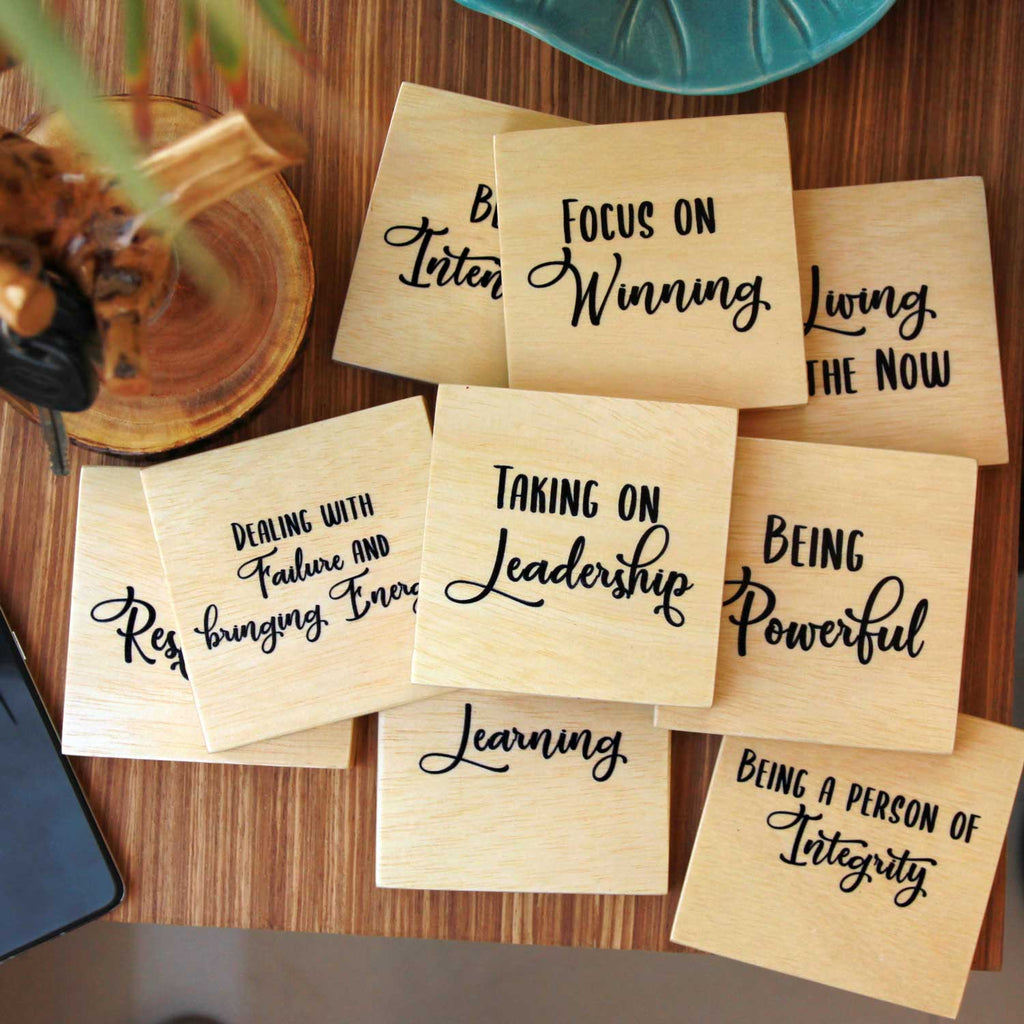 Focus on
Winning
Living
the Now
Dealing with
Failure and
bringing
Taking on
Leadership
Being
Powerful
Learning
Being a person of
Integrity